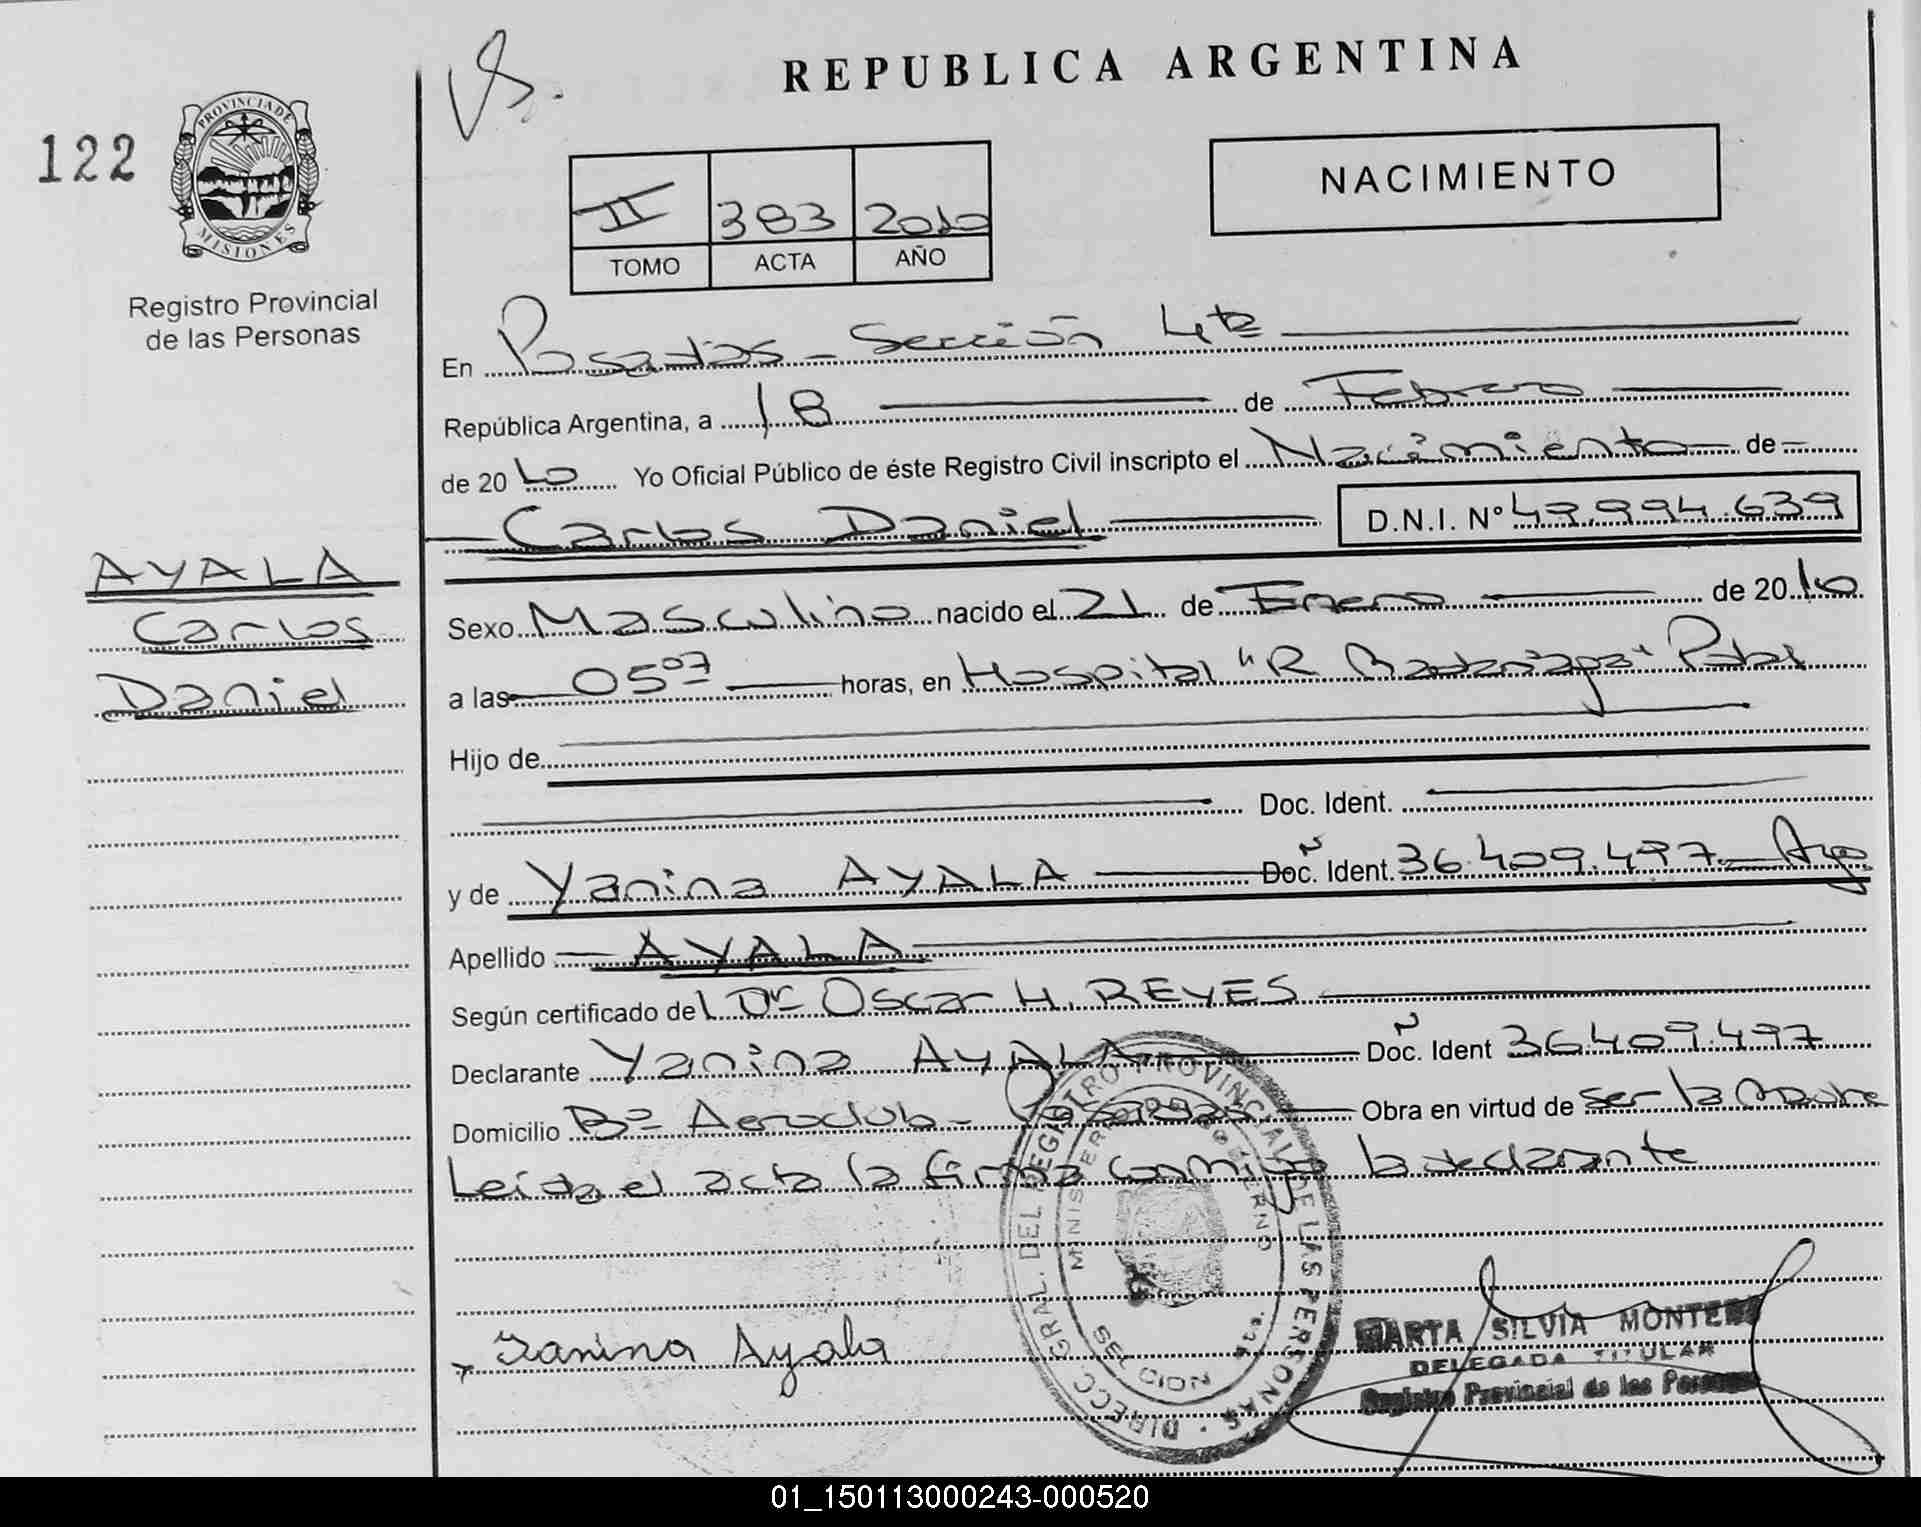 REPUBLICA ARGENTINA
122
PROVINCIA DE MISIONES
Registro Provincial
de las Personas
NACIMIENTO
II 383 2010
TOMO ACTA AÑO
En Posadas - Sección 4ta
República Argentina, a 18 de Febrero
de 2010 Yo Oficial Público de éste Registro Civil inscripto el Nacimiento de
Carlos Daniel D.N.I. Nº 49.994.639
AYALA
Carlos
Daniel
Sexo Masculino nacido el 21 de Enero de 2010
a las 05 07 horas, en Hospital "R Madariaga"
Hijo de
Doc. Ident.
y de Yanina AYALA Doc. Ident. 36.409.497
Apellido AYALA
Según certificado del Dr Oscar H. REYES
Declarante Yanina AYALA Doc. Ident 36.409.497
Domicilio Bº Aeroclub - Posadas Obra en virtud de ser la madre
Leida el acta la firma conmigo la declarante
DIRECC. GRAL. DEL REGISTRO PROVINCIAL DE LAS PERSONAS
Yanina Ayala
MARTA SILVIA MONTERO
DELEGADA TITULAR
Registro Provincial de las Personas
01_150113000243-000520